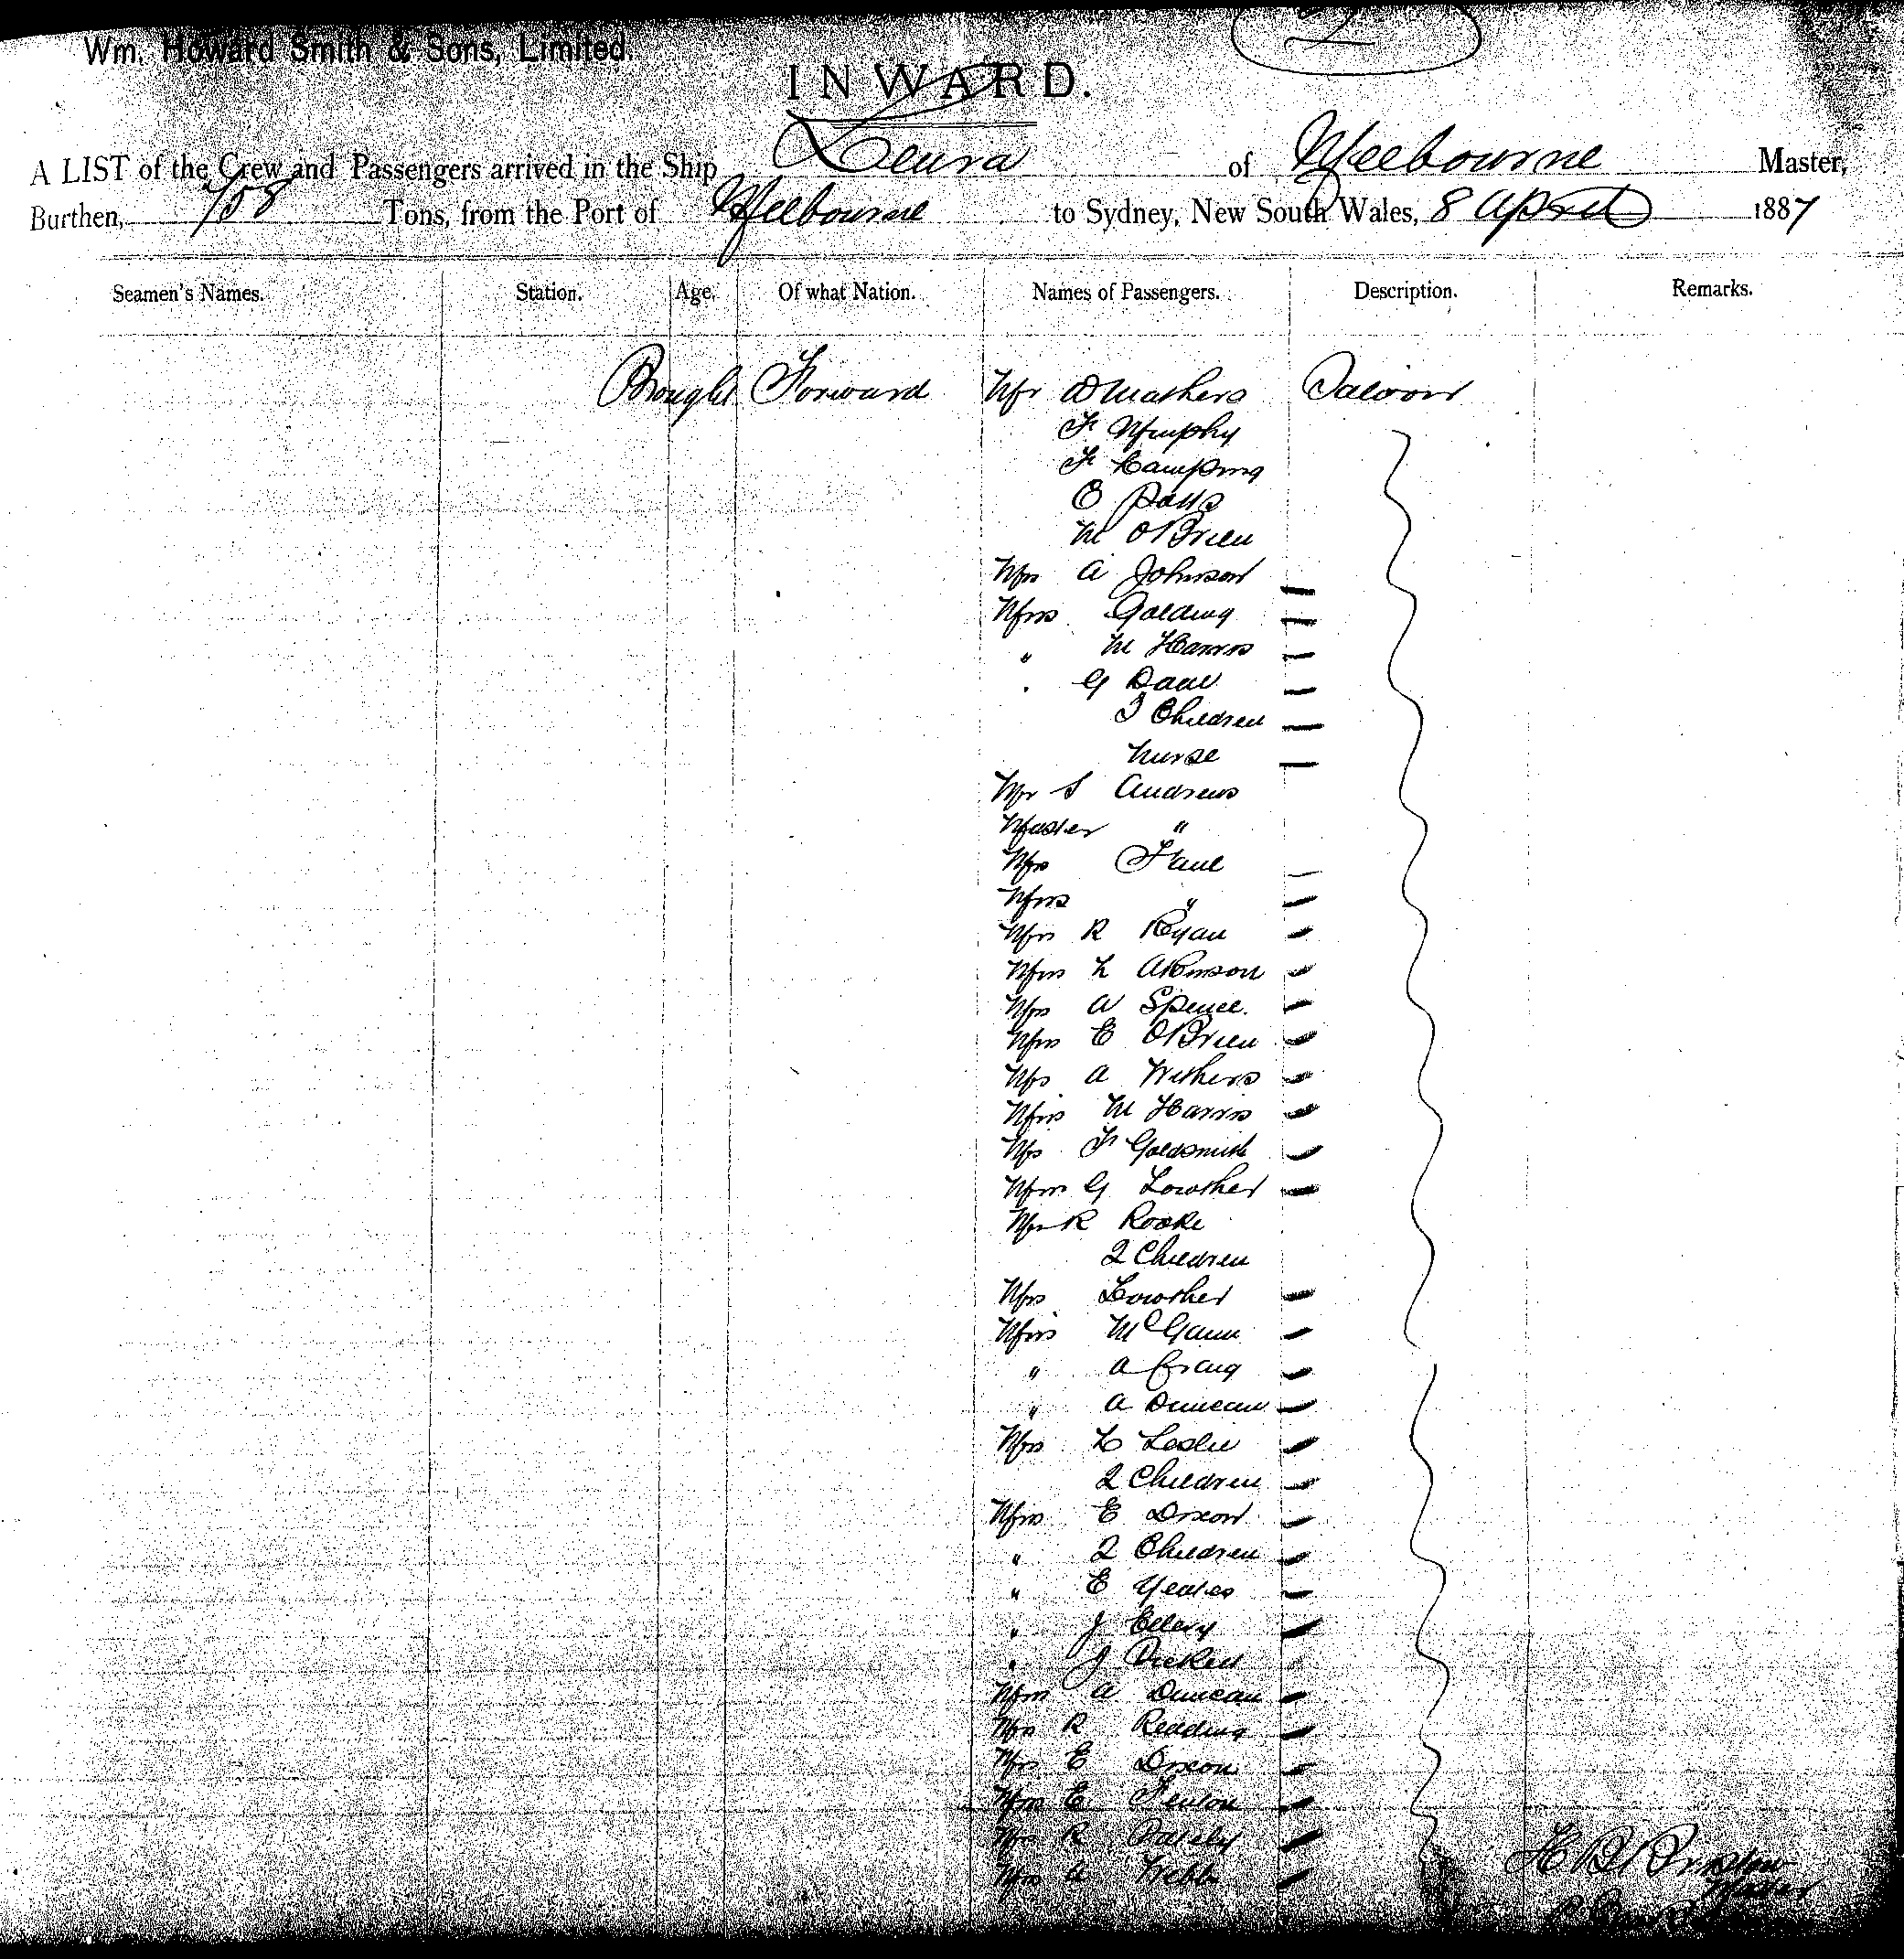 2
Wm. Howard Smith & Sons, Limited.
INWARD.
A LIST of the Crew and Passengers arrived in the Ship Leura of Melbourne Master,
Burthen, 758 Tons, from the Port of Melbourne to Sydney, New South Wales, 8 April 1887
Seamen's Names. Station. Age. Of what Nation. Names of Passengers. Description. Remarks.
Brought Forward Mr D Mathers Saloon
F Murphy
F Camping
O Potts
M OBrien
Mrs A Johnson
Miss Golding
" M Harris
" G Dane
3 Children
Nurse
Mr S Andrews
Master "
Mrs
Miss "
Miss R Ryan
Miss L Atkinson
Mrs A Spence.
Miss E OBrien
Mrs A Withers
Miss M Harris
Mrs F Goldsmith
Miss G Lowther
R Rooke
2 Children
Mrs Lowther
Miss McGann
" A Craig
" A Duncan
Mrs L Leslie
2 Children
Mrs E Dixon
" 2 Children
" E Yeates
" J Ellery
" J
Miss A Duncan
Mrs R Redding
Mrs E Dixon
Miss E Fenton
Mrs R
Miss A Webb
H B Bristow
Master